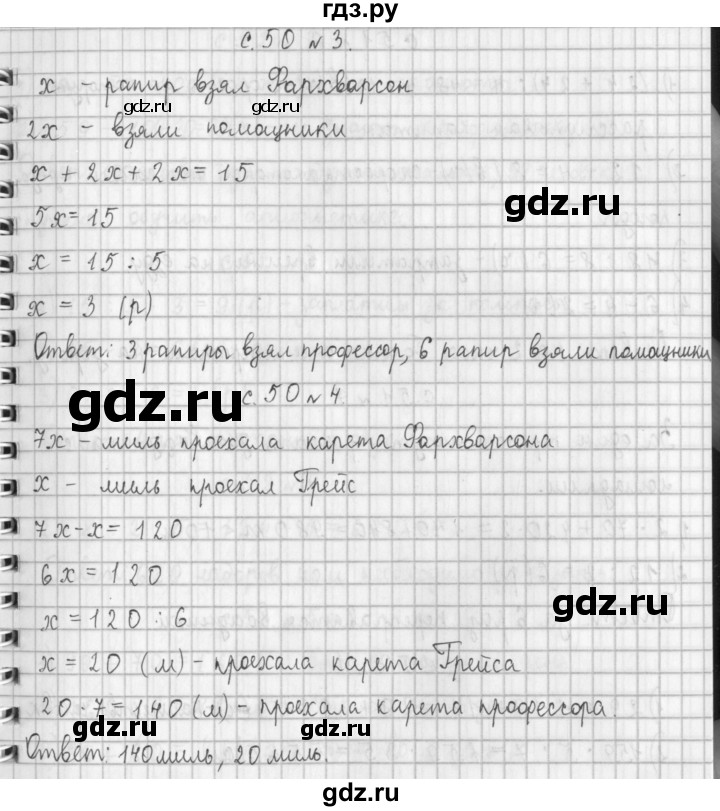 гдз.ру
с. 50 № 3.
х - рапир взял Фархварсон
gdz.ru gdz.ru
2х - взяли помощники
х + 2х + 2х = 15
gdz.ru
5х = 15
х = 15 : 5
х = 3 (р)
Ответ: 3 рапиры взял профессор, 6 рапир взяли помощники
gdz.ru
с. 50 № 4.
7х - миль проехала карета Фархварсона
х - миль проехал Грейс
7х - х = 120
6х = 120
gdz.ru
х = 120 : 6
х = 20 (м) - проехала карета Грейса
20 · 7 = 140 (м) - проехала карета профессора.
Ответ: 140 миль, 20 миль.
gdz.ru gdz.ru